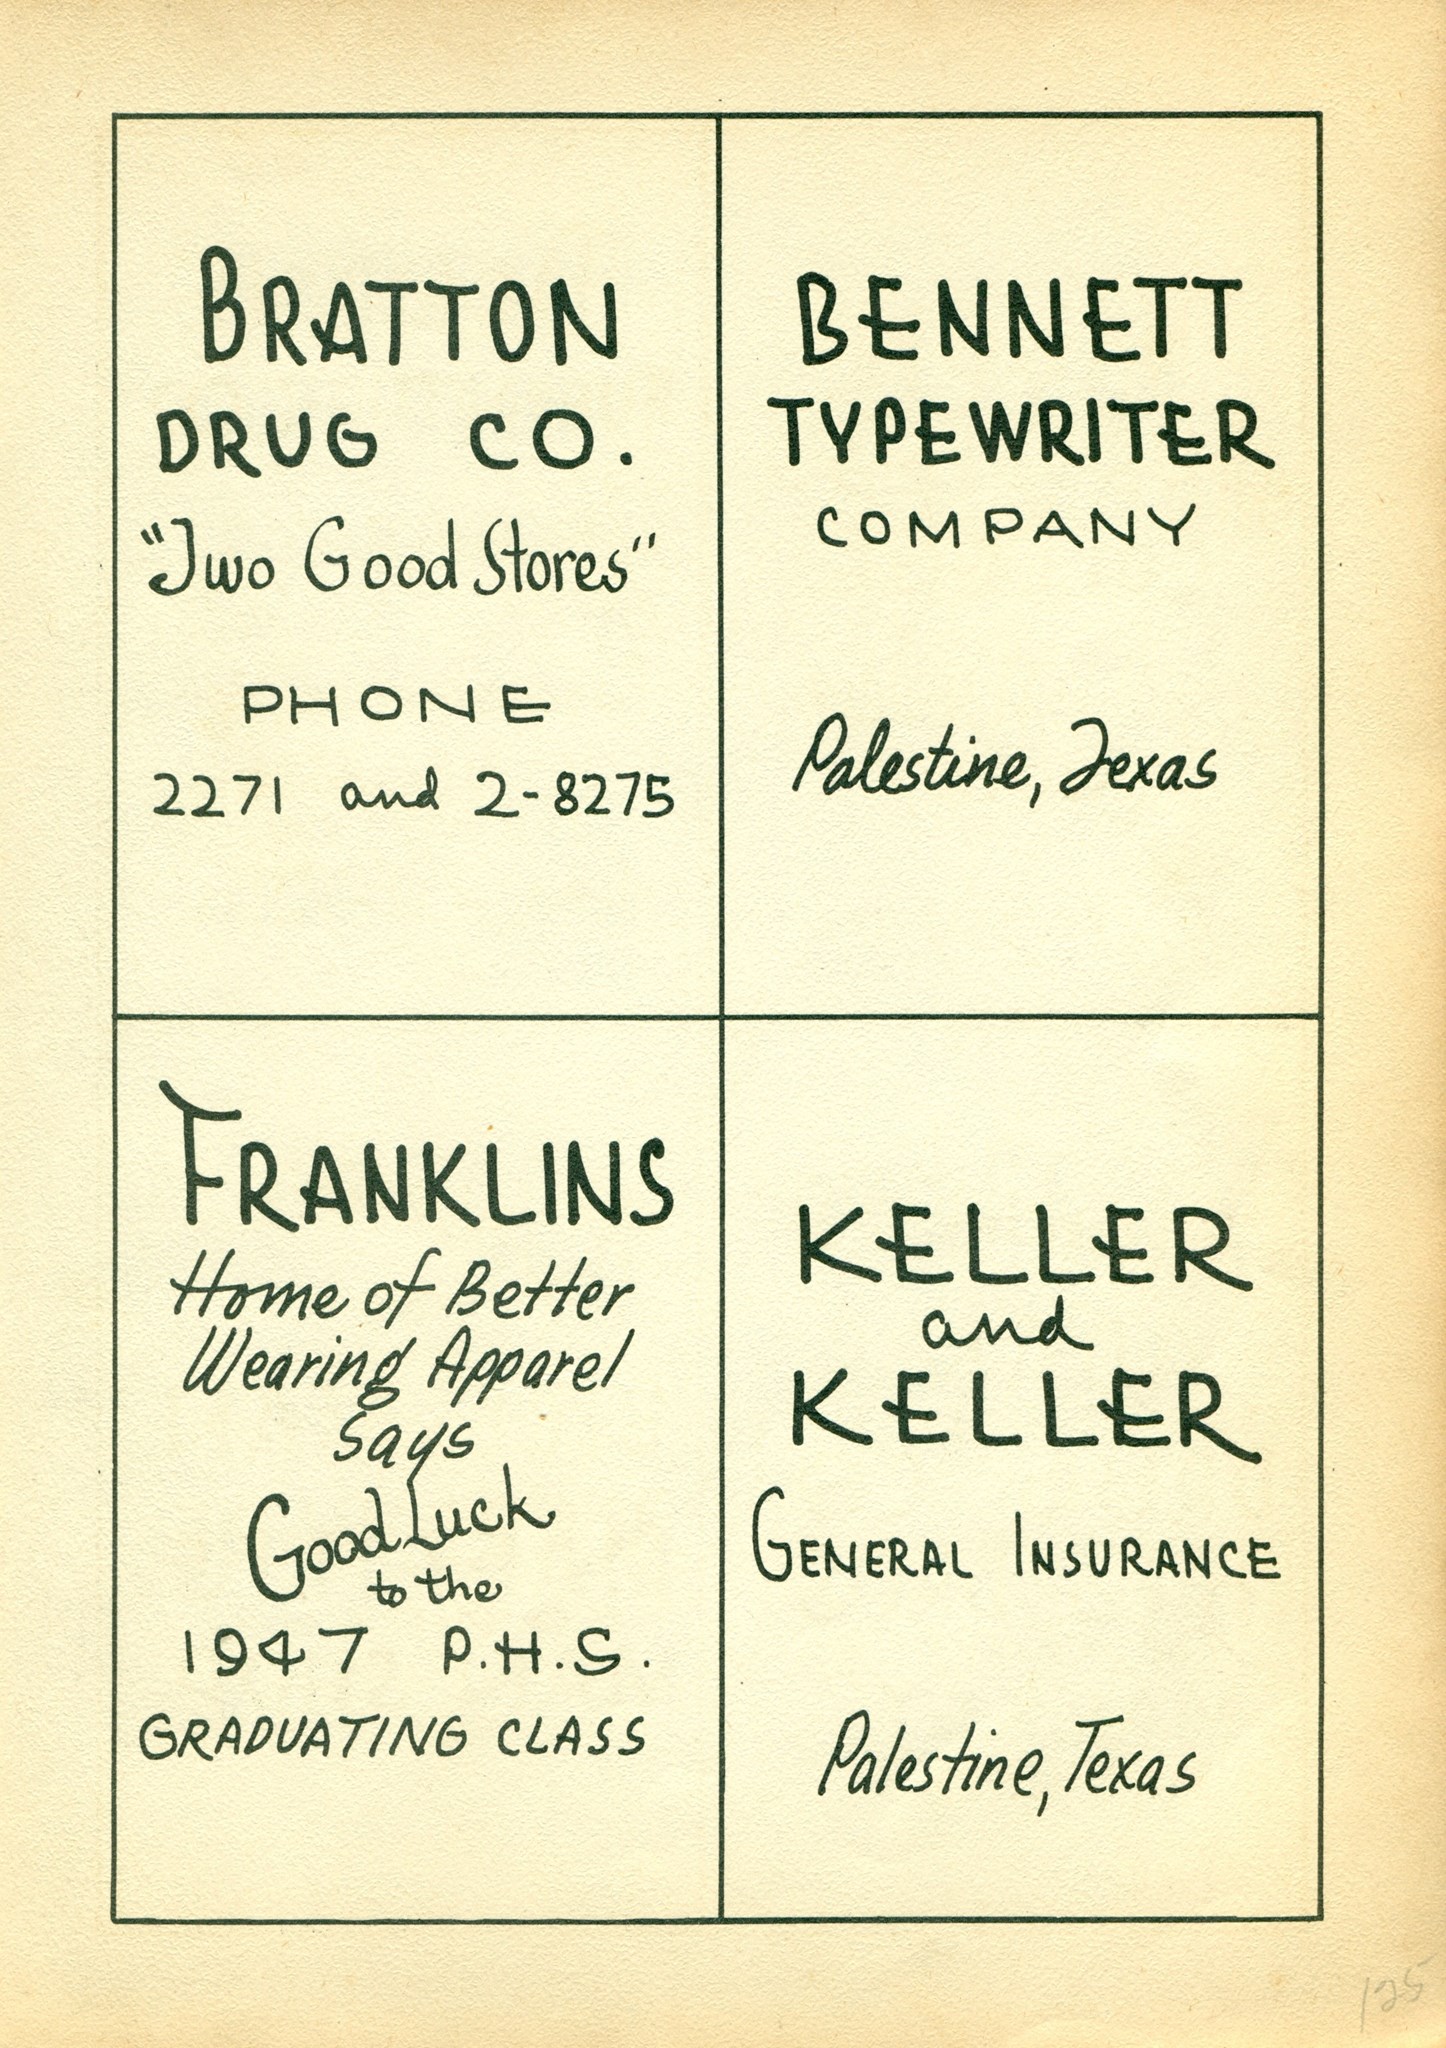 BRATTON
DRUG CO.
"Two Good Stores"
PHONE
2271 and 2-8275
BENNETT
TYPEWRITER
COMPANY
Palestine, Texas
FRANKLINS
Home of Better
Wearing Apparel
Says
Good Luck
to the
1947 P.H.S.
GRADUATING CLASS
KELLER
and
KELLER
GENERAL INSURANCE
Palestine, Texas
125